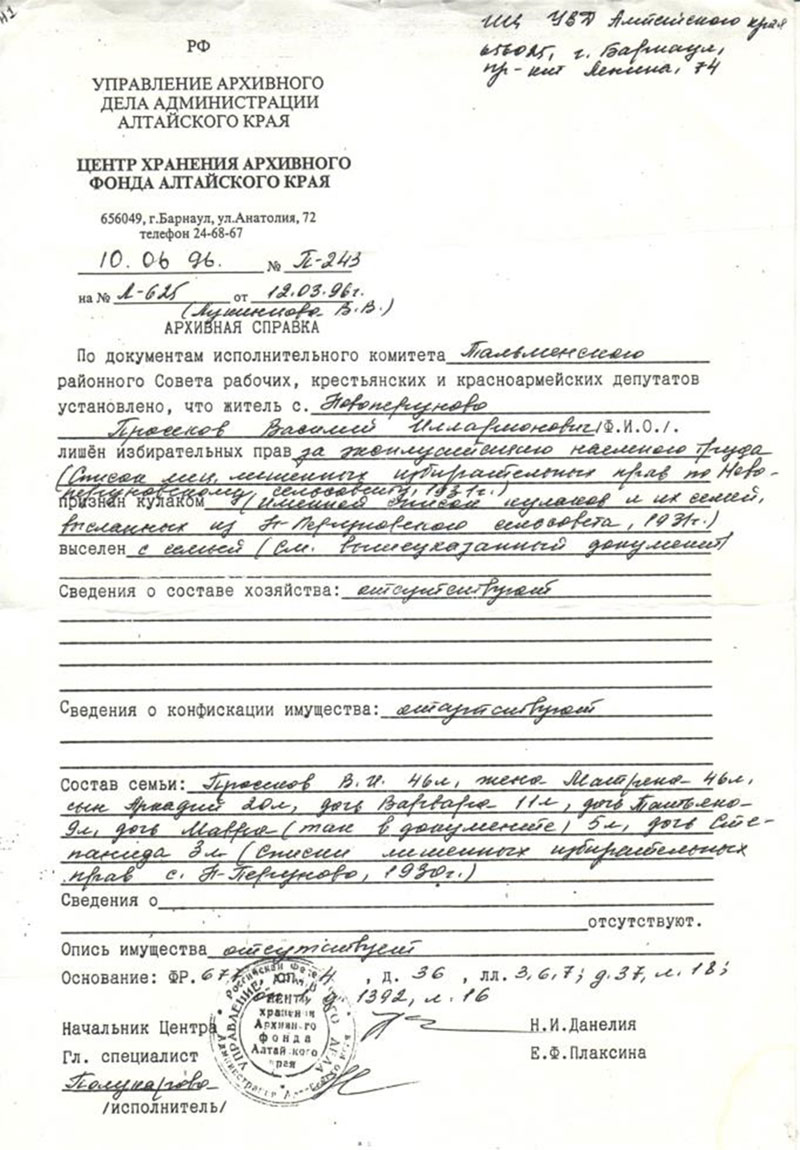 н1
ИЦ УВД Алтайского края
656025, г. Барнаул,
пр-кт Ленина, 74
РФ
УПРАВЛЕНИЕ АРХИВНОГО
ДЕЛА АДМИНИСТРАЦИИ
АЛТАЙСКОГО КРАЯ
ЦЕНТР ХРАНЕНИЯ АРХИВНОГО
ФОНДА АЛТАЙСКОГО КРАЯ
656049, г.Барнаул, ул.Анатолия, 72
телефон 24-68-67
10.06 96. № П-243
на № Л-625 от 12.03.96г.
(Лушникова В.В.)
АРХИВНАЯ СПРАВКА
По документам исполнительного комитета Тальменского
районного Совета рабочих, крестьянских и красноармейских депутатов
установлено, что житель с. Новоперуново
Просеков Василий Илларионович /Ф.И.О./.
лишён избирательных прав за эксплуатацию наемного труда
(Список лиц, лишенных избирательных прав по Ново-
перуновскому сельсовету, 1931г.)
признан кулаком (Именной список кулаков и их семей,
высланных из Н-Перуновского сельсовета, 1931г.)
выселен с семьей (см. вышеуказанный документ)
Сведения о составе хозяйства: отсутствуют
Сведения о конфискации имущества: отсутствуют
Состав семьи: Просеков В.И. 46л, жена Матрена 46л,
сын Аркадий 20л, дочь Варвара 11л, дочь
9л, дочь Мавра (так в документе) 5л, дочь Сте-
панида 3л (Списки лишенных избирательных
прав с. Н-Перуново, 1930г.)
Сведения о
отсутствуют.
Опись имущества отсутствует
Основание: ФР. 677 , д. 36 , лл. 3,6,7; д.37, л.18;
д 1392, л.16
Начальник Центра Н.И.Данелия
Гл. специалист Е.Ф.Плаксина
/исполнитель/
Центр
хранения
Архивного
фонда
Алтайского
края